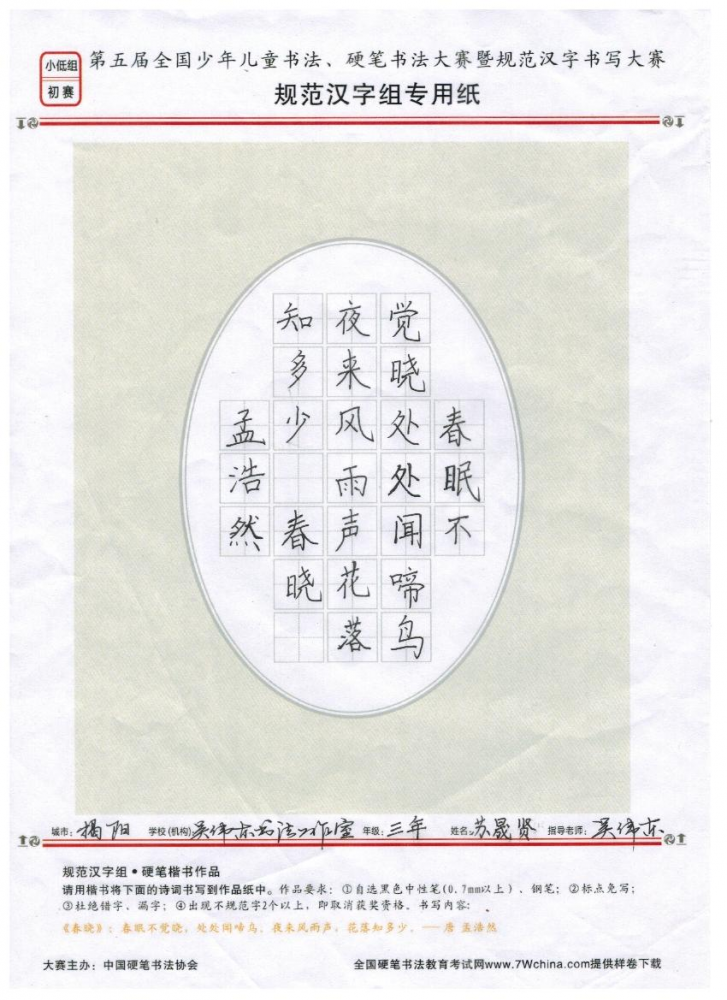 小低组
初赛
第五届全国少年儿童书法、硬笔书法大赛暨规范汉字书写大赛
规范汉字组专用纸
春眠不
觉晓处处闻啼鸟
夜来风雨声花落
知多少 春晓
孟浩然
城市：揭阳 学校(机构)：吴伟东书法工作室 年级：三年 姓名：苏晟贤 指导老师：吴伟东
规范汉字组•硬笔楷书作品
请用楷书将下面的诗词书写到作品纸中。作品要求：①自选黑色中性笔(0.7mm以上)、钢笔；②标点免写；
③杜绝错字、漏字；④出现不规范字2个以上，即取消获奖资格。书写内容：
《春晓》：春眠不觉晓，处处闻啼鸟。夜来风雨声，花落知多少。——唐 孟浩然
大赛主办：中国硬笔书法协会
全国硬笔书法教育考试网www.7Wchina.com提供样卷下载